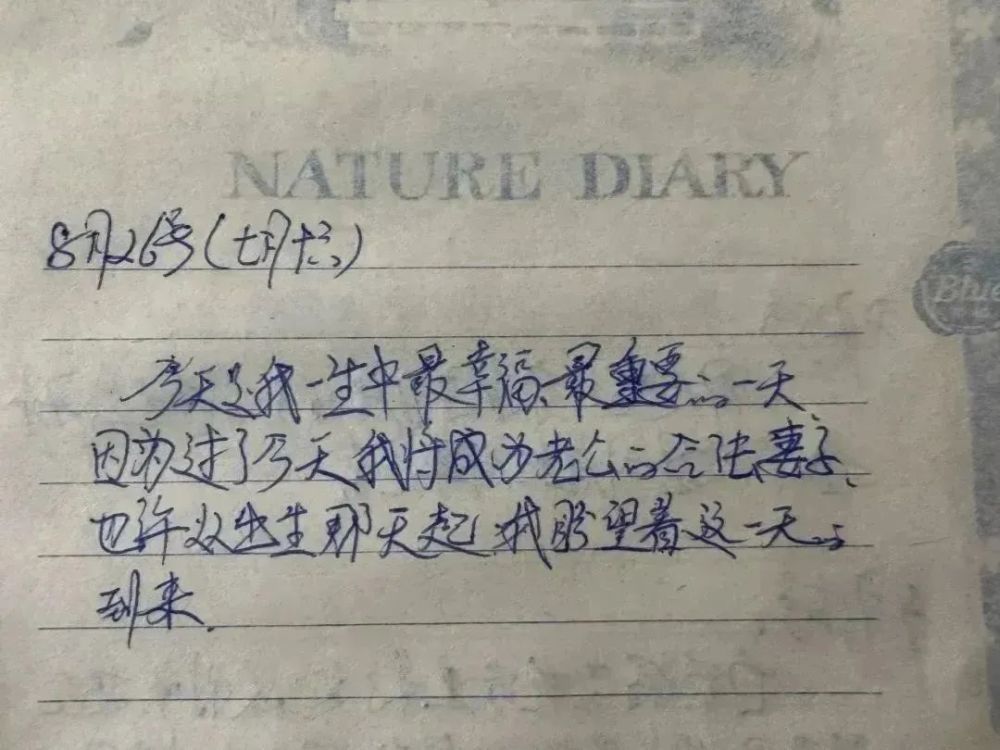 NATURE DIARY
8月26号(七月十六)
Blue
今天是我一生中最幸福、最重要的一天
因为过了今天我将成为老公的合法妻子、
也许从出生那天起我盼望着这一天的
到来.